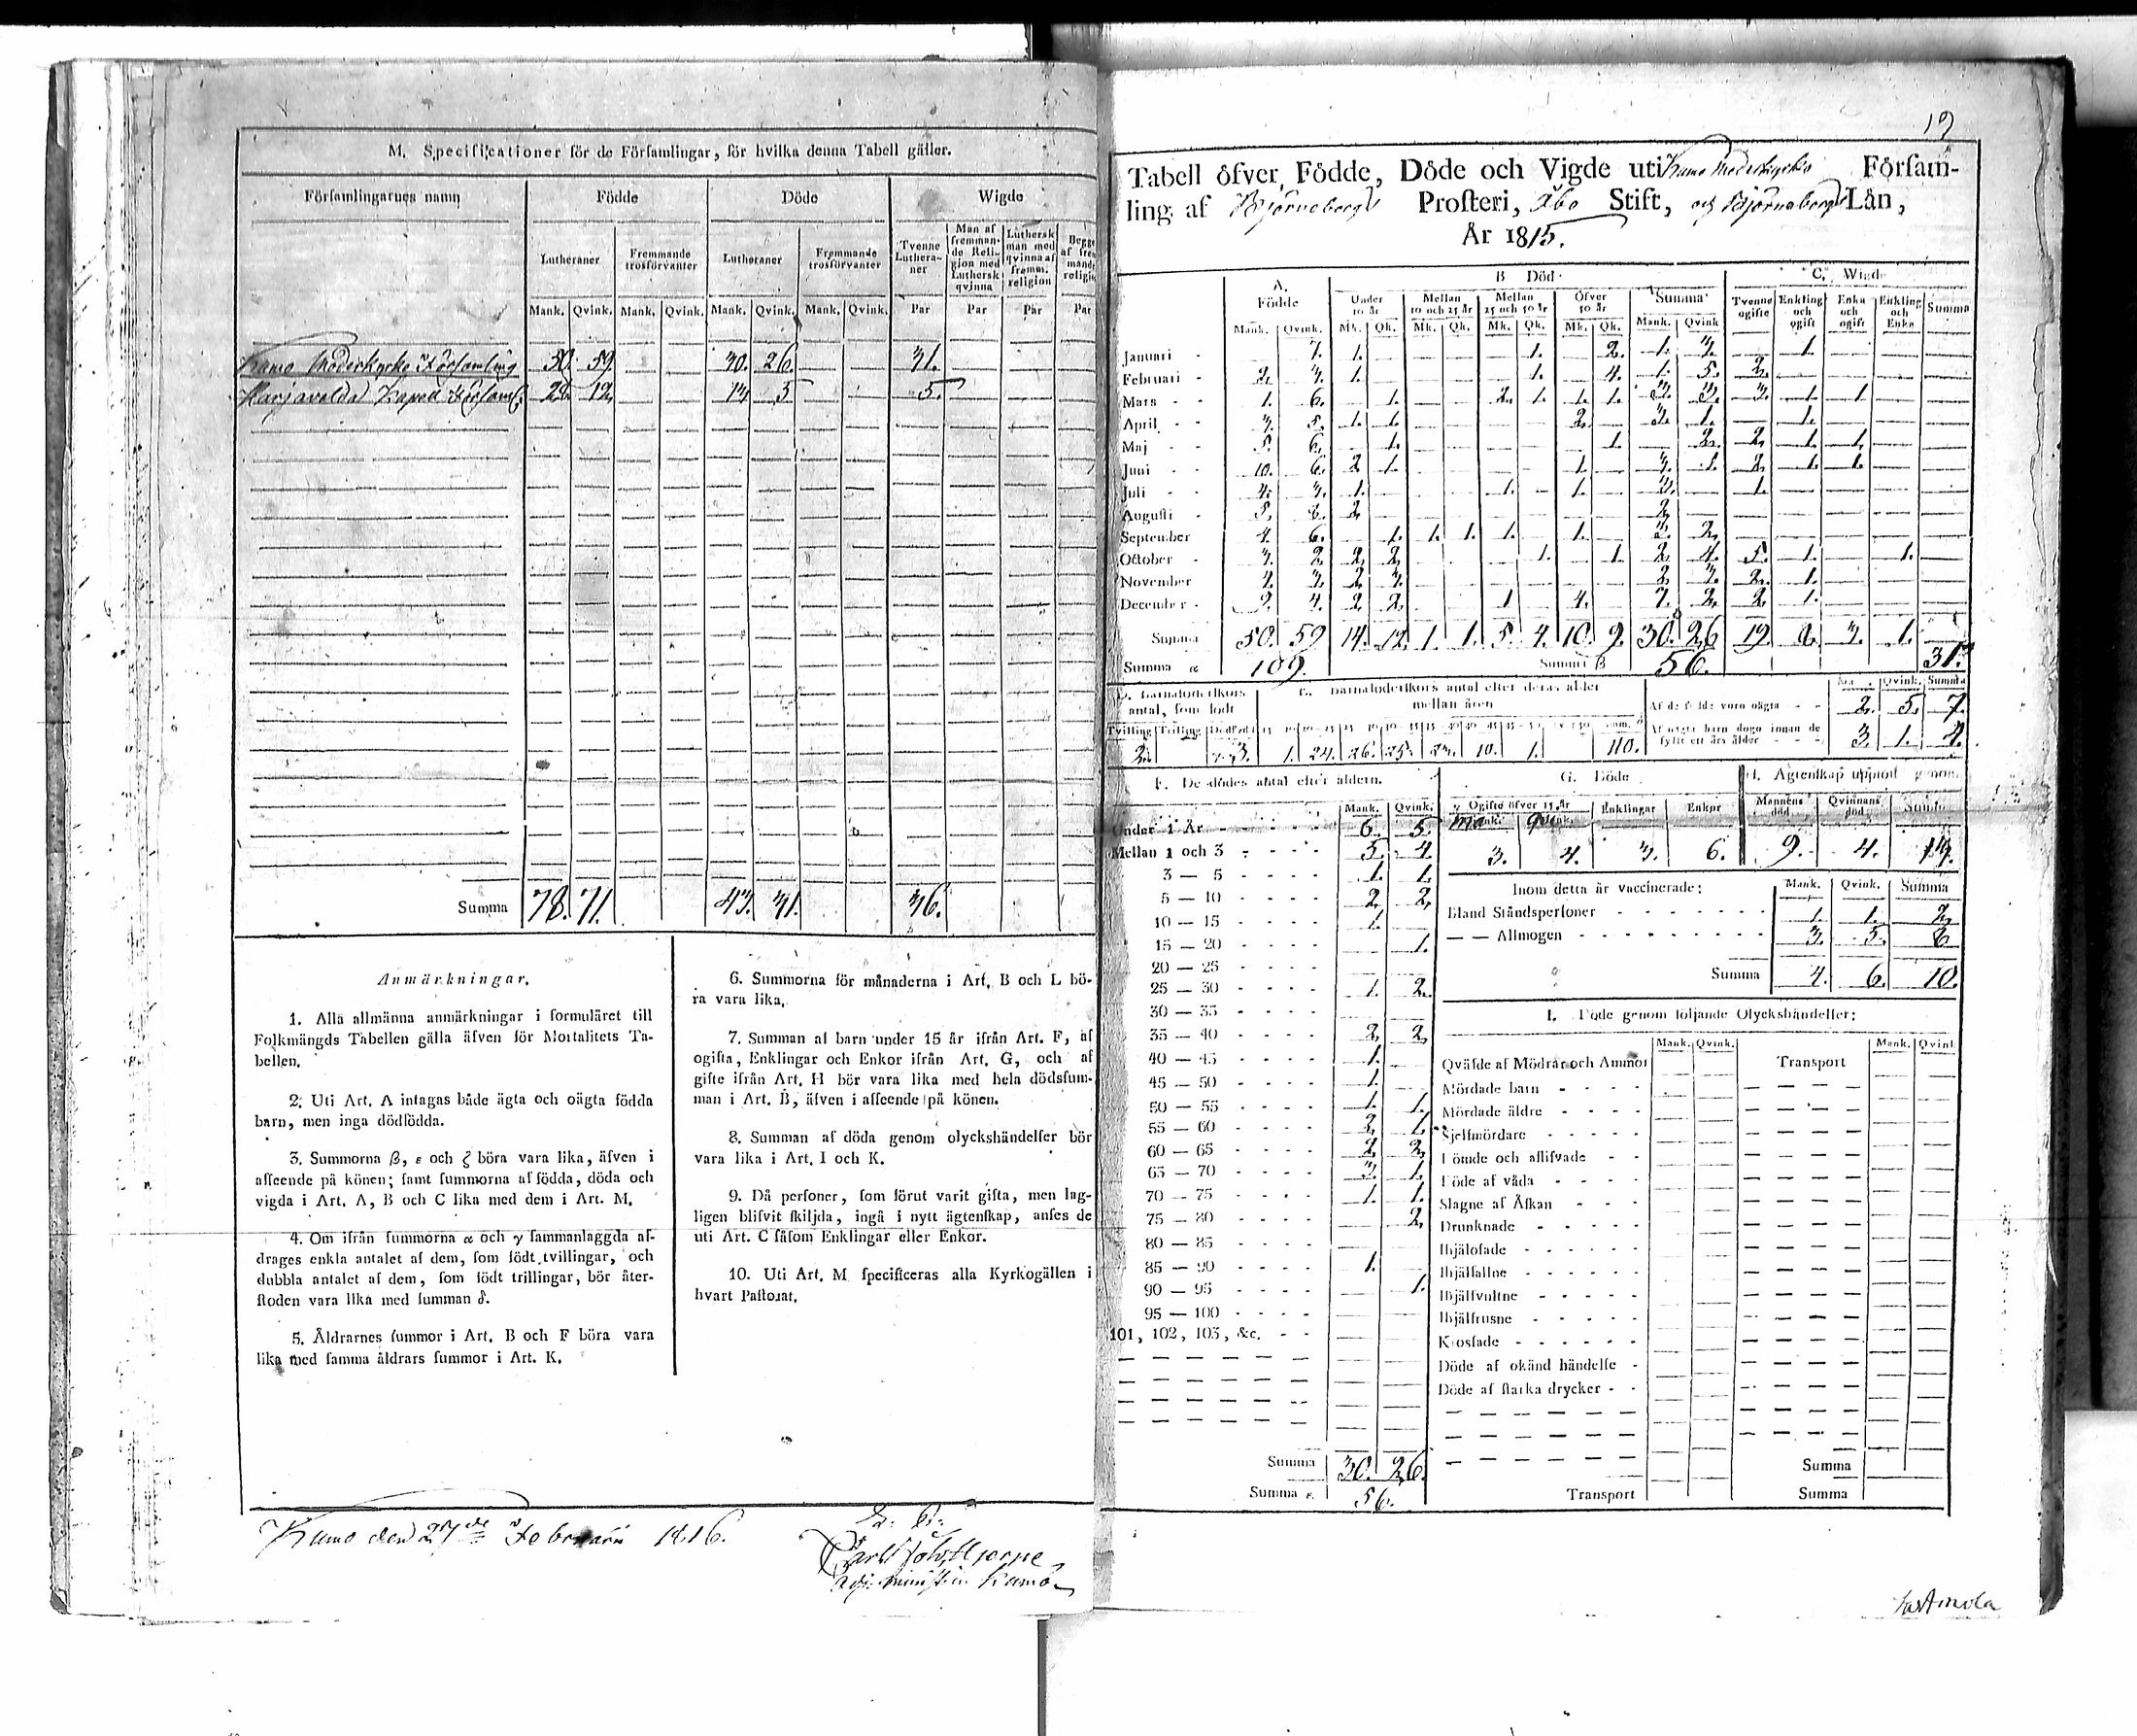 M. Specificationer för de Församlingar, för hvilka denna Tabell gäller.
Församlingarnes namn Födde Döde Wigde
Lutheraner Fremmande trosförvanter Lutheraner Fremmande trosförvanter Tvenne Lutheraner Man af fremmande Religion med Luthersk qvinna Luthersk man med qvinna af fremm. religion
Mank. Qvink. Mank. Qvink. Mank. Qvink. Mank. Qvink. Par Par Par Par
Kumo Moderkyrko Församling 50. 59. 30. 26. 31.
Harjavalda Kapell Församl. 28. 12. 13. 5 5.
Summa 78. 71. 43. 31. 36.
Anmärkningar.
1. Alla allmänna anmärkningar i formuläret till
Folkmängds Tabellen gälla äfven för Mortalitets Ta-
bellen.
2. Uti Art. A intagas både ägta och oägta födda
barn, men inga dödfödda.
3. Summorna β, ε och ζ böra vara lika, äfven i
afseende på könen; samt summorna af födda, döda och
vigda i Art. A, B och C lika med dem i Art. M.
4. Om ifrån summorna α och γ sammanlaggda af-
drages enkla antalet af dem, som födt tvillingar, och
dubbla antalet af dem, som födt trillingar, bör åter-
stoden vara lika med summan δ.
5. Åldrarnes summor i Art. B och F böra vara
lika med samma åldrars summor i Art. K.
6. Summorna för månaderna i Art. B och L bö-
ra vara lika.
7. Summan af barn under 15 år ifrån Art. F, af
ogifta, Enklingar och Enkor ifrån Art. G, och af
gifte ifrån Art. H bör vara lika med hela dödssum-
man i Art. B, äfven i afseende på könen.
8. Summan af döda genom olyckshändelser bör
vara lika i Art. I och K.
9. Då personer, som förut varit gifta, men lag-
ligen blifvit skiljda, ingå i nytt ägtenskap, anses de
uti Art. C såsom Enklingar eller Enkor.
10. Uti Art. M specificeras alla Kyrkogällen i
hvart Pastorat.
Kumo den 27de Februarii 1816.
Carl
Kumo
19
Tabell öfver Födde, Döde och Vigde uti Kumo Moderkyrko Församling
ling af Björneborgs Prosteri, Åbo Stift, och Björneborgs Län,
År 1815.
A. Födde B Död C. Wigde
Under 10 år Mellan 10 och 25 år Mellan 25 och 50 år Öfver 50 år Summa Tvenne ogifte Enkling och ogift Enka och ogift Enkling och Enka Summa
Mank. Qvink. Mk. Qk. Mk. Qk. Mk. Qk. Mk. Qk. Mank. Qvink
Januari 7. 1. 1. 2. 1. 3. 1.
Februari 2. 3. 1. 1. 4. 1. 5. 2.
Mars 1. 6. 1. 2. 1. 1. 1. 3. 3. 3. 1. 1.
April 3. 5. 1. 1. 2. 3. 1. 1.
Maj 5. 6. 1. 1. 2. 2. 1. 1.
Juni 10. 6. 2. 1. 1. 3. 1. 2. 1. 1.
Juli 4. 3. 1. 1. 1. 3. 1.
Augusti 5. 2. 2.
September 4. 6. 1. 1. 1. 1. 1. 3. 2.
October 3. 2. 2. 2. 1. 1. 2. 4. 5. 1. 1.
November 3. 2. 3. 2. 3. 2. 1.
December 9. 4. 2. 2. 1 4. 7. 2. 2. 1.
Summa 50. 59 14. 12. 1. 1. 5. 4. 10. 9. 30. 26 19. 8. 3. 1.
Summa α 109. Summa β 56. 31.
D. Barnaföderskors antal, som födt E. Barnaföderskors antal efter deras ålder mellan åren
Mank. Qvink. Summa
Af de födde voro oägta 2. 5. 7.
Tvilling Trilling Dödfödt
2. 3. 1. 24. 26. 25. 23. 10. 1. 110.
Af oägta barn dogo innan de fyllt ett års ålder 3. 1. 4.
F. De dödes antal efter åldern.
Mank. Qvink.
Under 1 År 6. 5.
Mellan 1 och 3 5. 4.
3 — 5 1. 1.
5 — 10 2. 2.
10 — 15 1.
15 — 20 1.
20 — 25
25 — 30 1. 2.
30 — 35
35 — 40 2. 2.
40 — 45 1.
45 — 50 1.
50 — 55 1. 1.
55 — 60 2. 1.
60 — 65 2. 2.
65 — 70 3. 1.
70 — 75 1. 1.
75 — 80 2.
80 — 85
85 — 90 1.
90 — 95 1.
95 — 100
101, 102, 103, &c.
Summa 30. 26.
Summa ε. 56.
G. Döde H. Ägtenskap upplöst genom
Ogifte öfver 15 år Enklingar Enkor Mannens död Qvinnans död Summa
3. 4. 3. 6. 9. 4. 13.
Inom detta år vaccinerade: Mank. Qvink. Summa
Bland Ståndspersoner 1. 1. 2
— — Allmogen 3. 5. 8
Summa 4. 6. 10.
I. Döde genom följande Olyckshändelser:
Mank. Qvink. Mank. Qvink
Qväfde af Mödrar och Ammor Transport
Mördade barn
Mördade äldre
Sjelfmördare
Dömde och aflifvade
Döde af våda
Slagne af Åskan
Drunknade
Ihjälosade
Ihjälfallne
Ihjälsvultne
Ihjälfrusne
Krossade
Döde af okänd händelse
Döde af starka drycker
Summa
Transport Summa